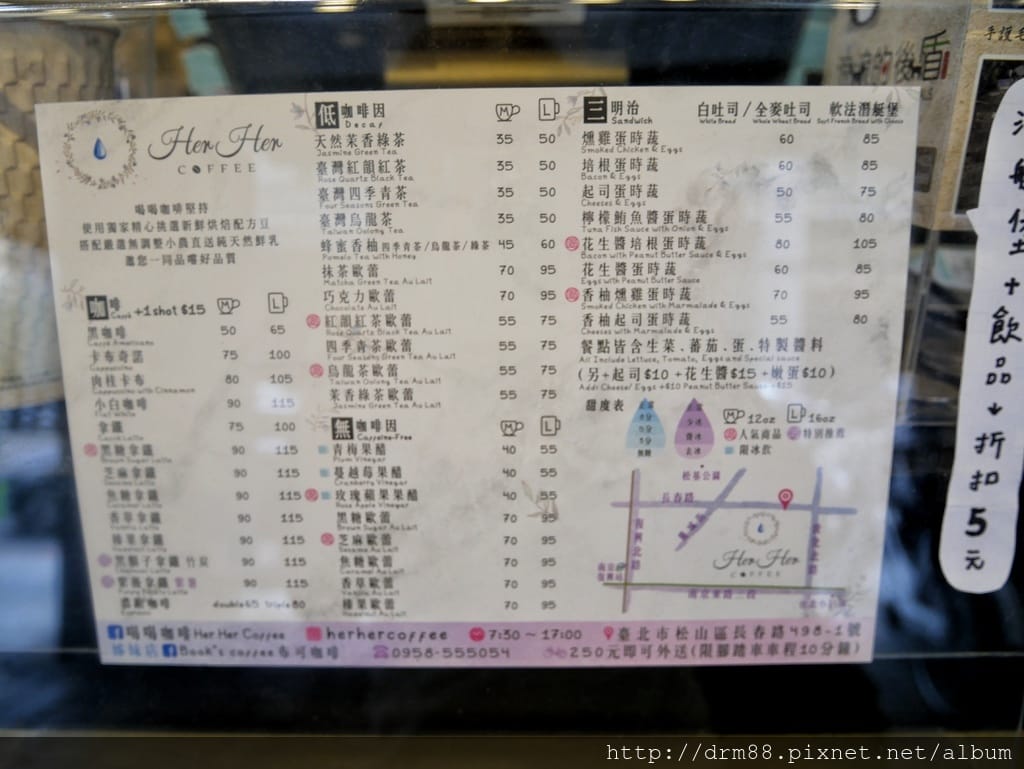 Her Her
COFFEE
喝喝咖啡堅持
使用獨家精心挑選新鮮烘焙配方豆
搭配嚴選無調整小農直送純天然鮮乳
邀您一同品嚐好品質
咖啡 +1shot $15 M L
黑咖啡 50 65
Caffè Americano
卡布奇諾 75 100
Cappuccino
肉桂卡布 80 105
Cappuccino with Cinnamon
小白咖啡 90 115
Flat White
拿鐵 75 100
Caffè Latte
黑糖拿鐵 90 115
Brown Sugar Latte
芝麻拿鐵 90 115
Sesame Latte
焦糖拿鐵 90 115
Caramel Latte
香草拿鐵 90 115
Vanilla Latte
榛果拿鐵 90 115
Hazelnut Latte
拿鐵 竹炭 90 115
拿鐵 紫薯 90 115
濃縮咖啡 double65 triple80
Espresso
低咖啡因 M L
Decaf
天然茉香綠茶 35 50
Jasmine Green Tea
臺灣紅韻紅茶 35 50
Rose Quartz Black Tea
臺灣四季青茶 35 50
Four Seasons Green Tea
臺灣烏龍茶 35 50
Taiwan Oolong Tea
蜂蜜香柚 四季青茶/烏龍茶/綠茶 45 60
Pomelo Tea with Honey
抹茶歐蕾 70 95
Matcha Green Tea Au Lait
巧克力歐蕾 70 95
Chocolate Au Lait
紅韻紅茶歐蕾 55 75
Rose Quartz Black Tea Au Lait
四季青茶歐蕾 55 75
Four Seasons Green Tea Au Lait
烏龍茶歐蕾 55 75
Taiwan Oolong Tea Au Lait
茉香綠茶歐蕾 55 75
Jasmine Green Tea Au Lait
無咖啡因 M L
Caffeine-Free
青梅果醋 40 55
Plum Vinegar
蔓越莓果醋 40 55
Cranberry Vinegar
玫瑰蘋果果醋 40 55
Rose Apple Vinegar
黑糖歐蕾 70 95
Brown Sugar Au Lait
芝麻歐蕾 70 95
Sesame Au Lait
焦糖歐蕾 70 95
Caramel Au Lait
香草歐蕾 70 95
Vanilla Au Lait
榛果歐蕾 70 95
Hazelnut Au Lait
三明治 白吐司/全麥吐司 軟法潛艇堡
Sandwich White Bread Whole Wheat Bread Soft French Bread with Cheese
燻雞蛋時蔬 60 85
Smoked Chicken & Eggs
培根蛋時蔬 60 85
Bacon & Eggs
起司蛋時蔬 50 75
Cheeses & Eggs
檸檬鮪魚醬蛋時蔬 55 80
Tuna Fish Sauce with Onion & Eggs
花生醬培根蛋時蔬 80 105
Bacon with Peanut Butter Sauce & Eggs
花生醬蛋時蔬 60 85
Eggs with Peanut Butter Sauce
香柚燻雞蛋時蔬 70 95
Smoked Chicken with Marmalade & Eggs
香柚起司蛋時蔬 55 80
Cheeses with Marmalade & Eggs
餐點皆含生菜、蕃茄、蛋、特製醬料
All Include Lettuce, Tomato, Eggs and Special sauce
(另+起司$10 +花生醬$15 +嫩蛋$10)
甜度表 M 12oz L 16oz
人氣商品 特別推薦
限冰飲
松基公園
長春路
復興北路
Her Her
COFFEE
南京東路三段
喝喝咖啡Her Her Coffee herhercoffee 7:30~17:00 臺北市松山區長春路498-1號
姊妹店 Book's coffee布可咖啡 0958-555054 250元即可外送(限腳踏車車程10分鐘)
的後盾
手護毛
潛艇堡+飲品↓折扣5元
http://drm88.pixnet.net/album